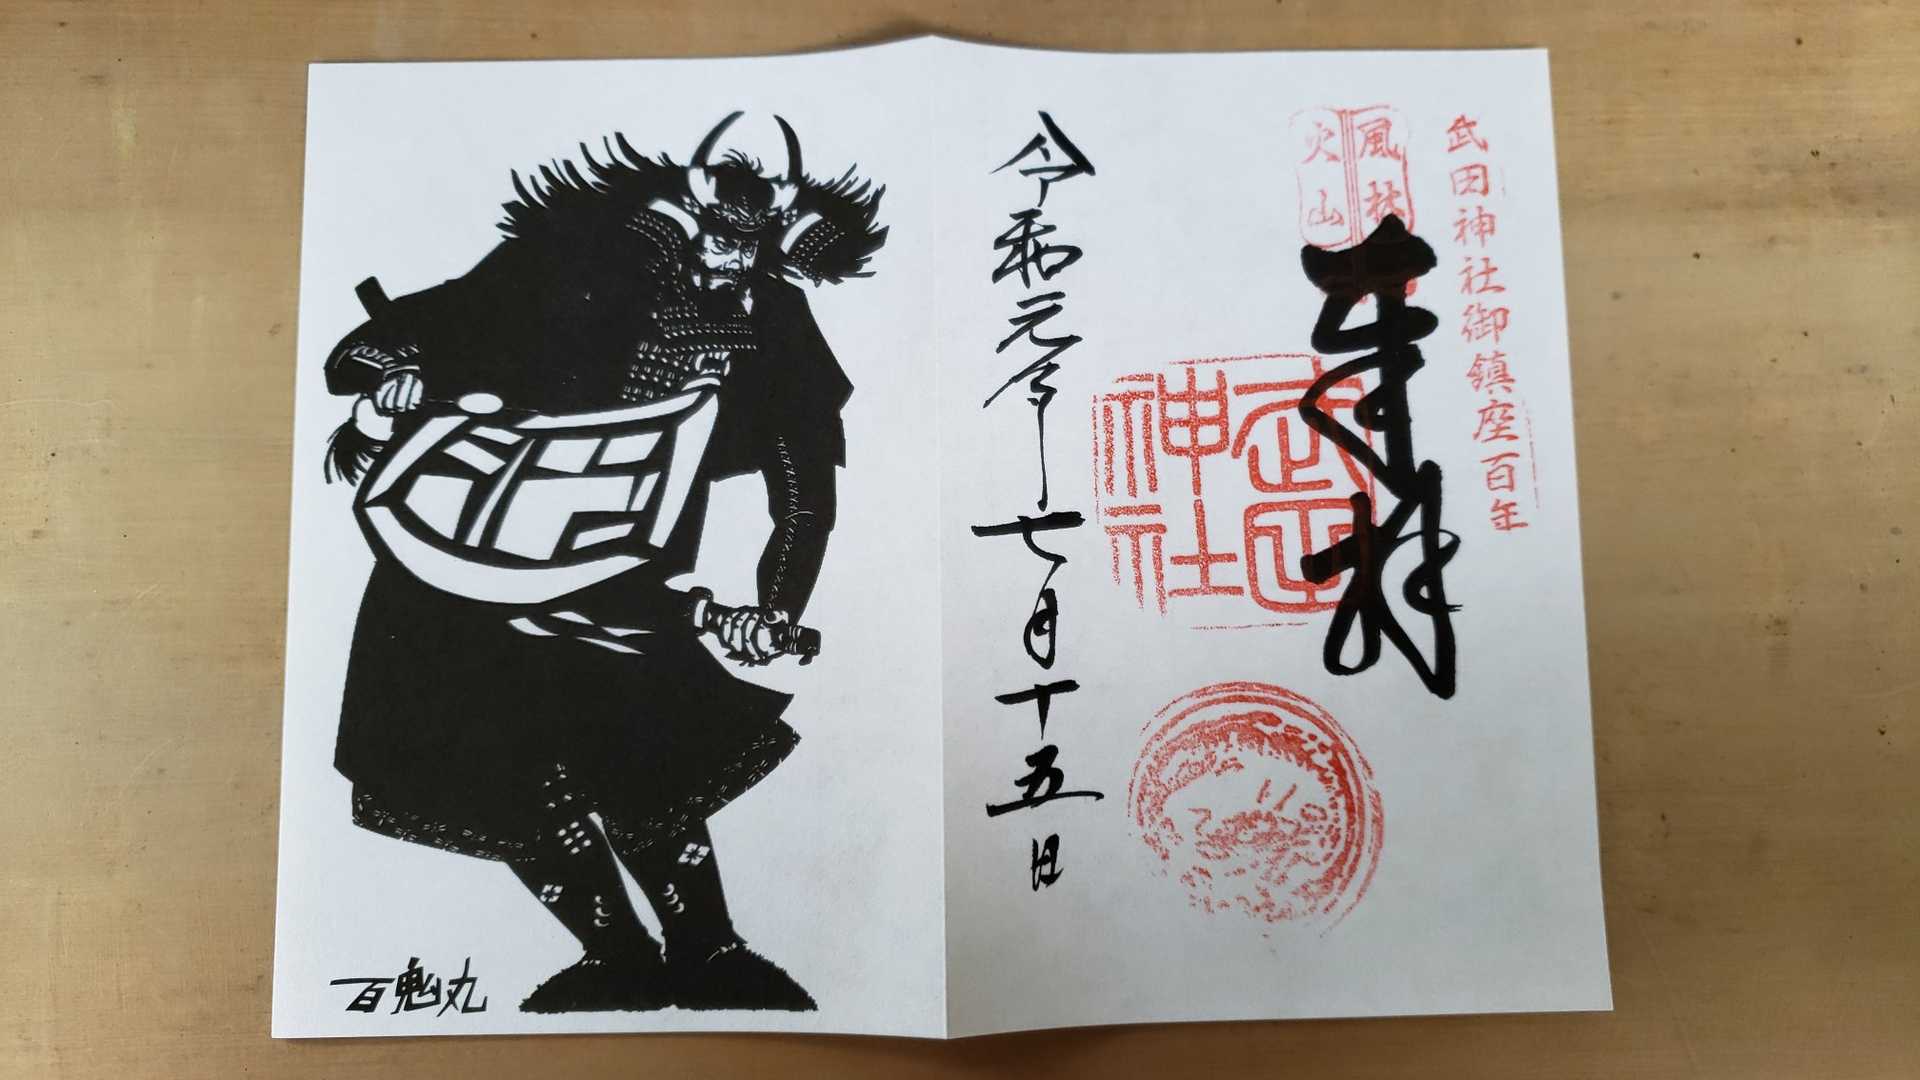 武田神社御鎮座百年
風林
火山
奉拝
武田
神社
令和元年七月十五日
百鬼丸